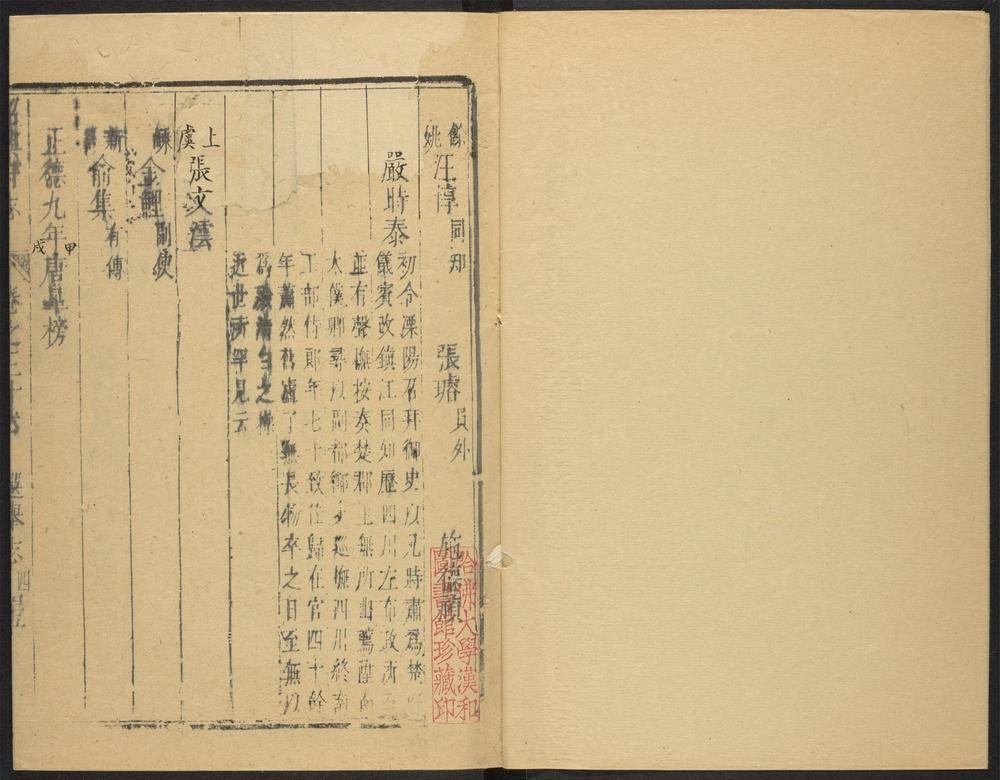 餘姚 汪惇 同知 張璿 員外
嚴時泰 初令溧陽召拜御史以兄時肅爲楚
儀賓改鎮江同知歷四川左布政所
並有聲撫按奏楚郡上無所
太僕卿尋以副都御史巡撫四川終南
工部侍郎年七十致仕歸在官四十餘
年蕭然舊廬了無長物卒之日至無以
爲
近世所罕見云
上虞 張文澐
嵊 金鯉 副使
新 俞集 有傳
正德九年甲戌唐皐榜
選舉志四
哈佛大學漢和
圖書館珍藏印